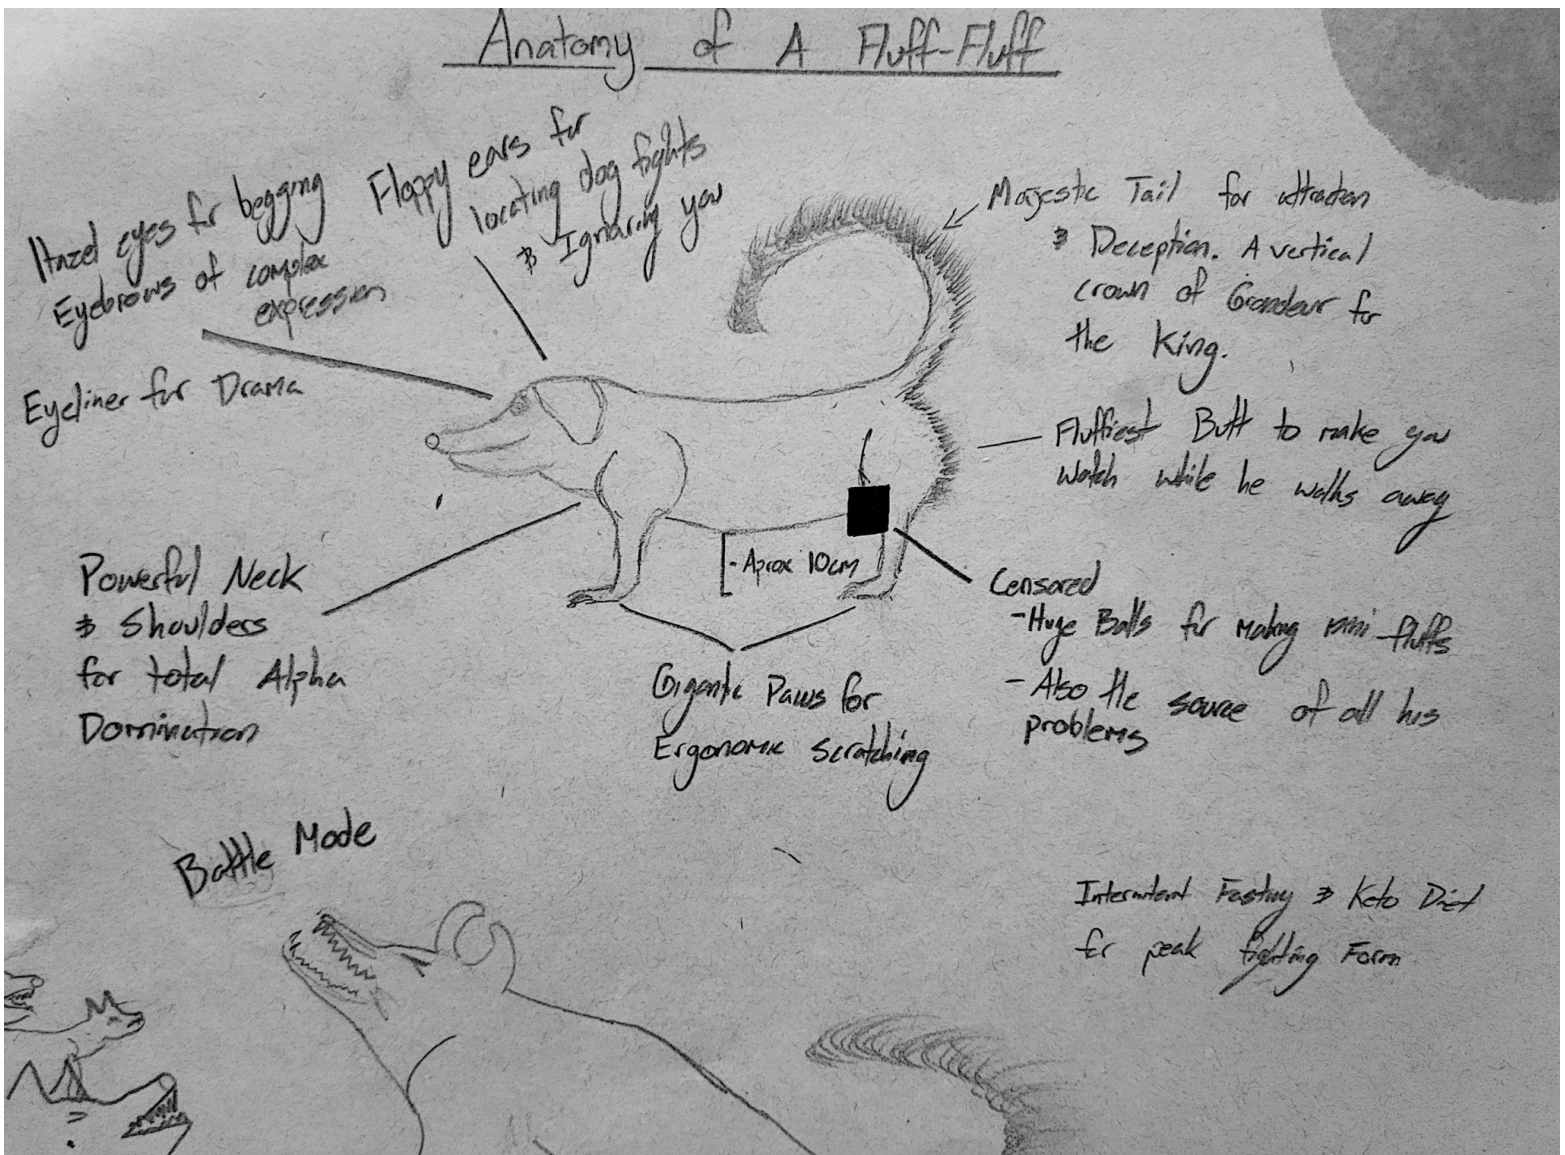 Anatomy of A Fluff-Fluff
Hazel eyes for begging
Eyebrows of complex
expression
Eyeliner for Drama
Floppy ears for
locating dog fights
& Ignoring you
Majestic Tail for attraction
& Deception. A vertical
crown of Grandeur for
the King.
Fluffiest Butt to make you
watch while he walks away
Powerful Neck
& Shoulders
for total Alpha
Domination
- Aprox 10cm
Gigantic Paws for
Ergonomic Scratching
Censored
- Huge Balls for making mini fluffs
- Also the source of all his
problems
Battle Mode
Intermitent Fasting & Keto Diet
for peak fighting Form